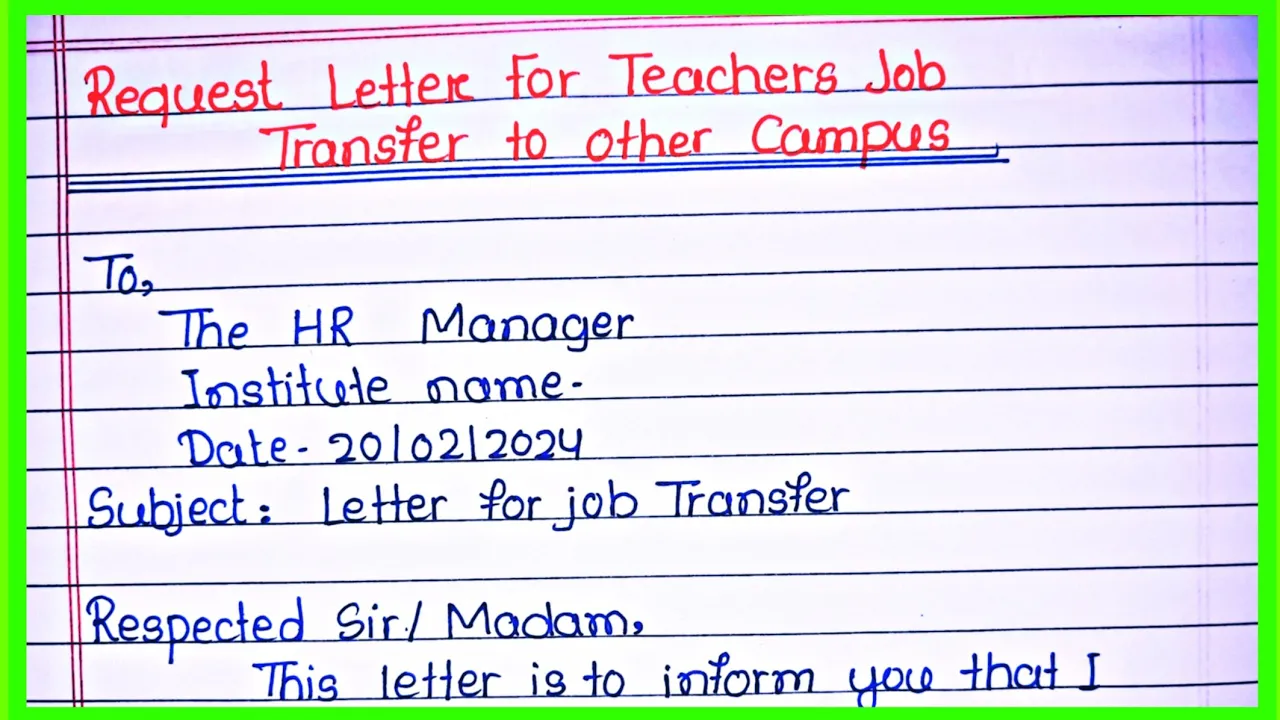 Request Letter for Teachers Job
Transfer to other Campus
To,
The HR Manager
Institute name-
Date- 20/02/2024
Subject: Letter for job Transfer
Respected Sir/ Madam,
This letter is to inform you that I